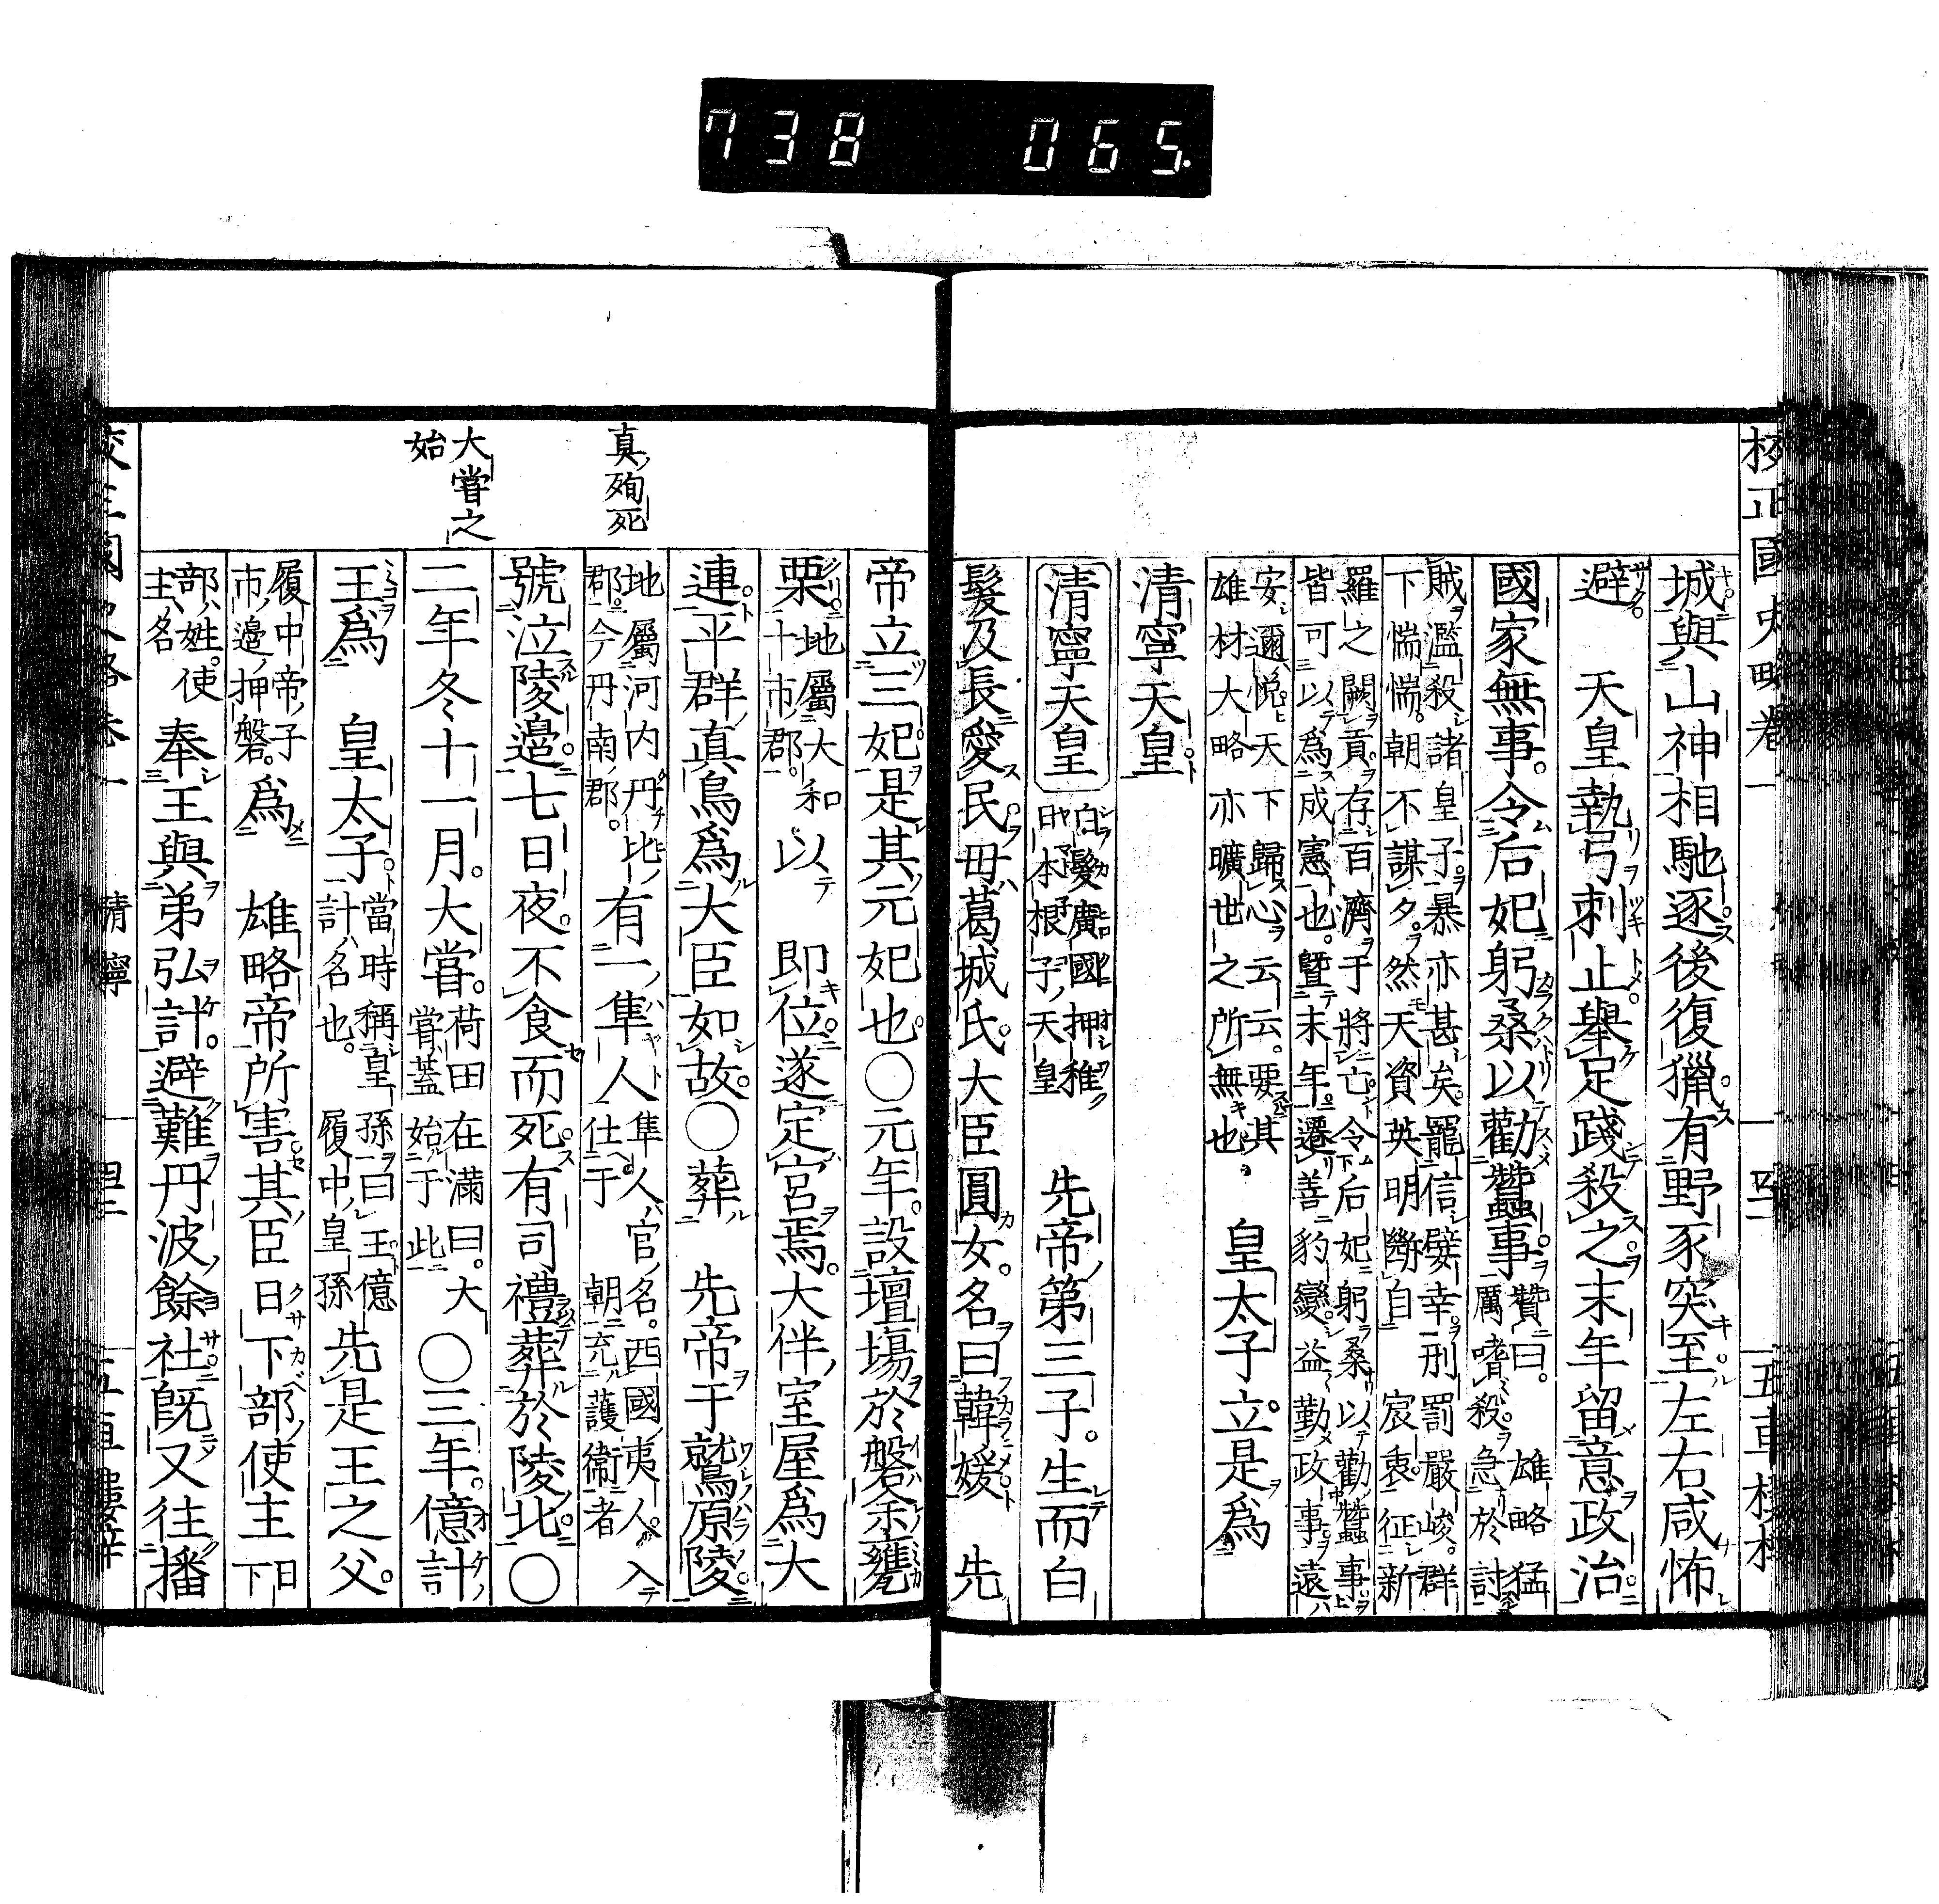 738 065
校正國史略卷一
城與山神相馳逐後復獵有野豕突至左右咸怖
避 天皇執弓刺止舉足踐殺之末年留意政治
國家無事令后妃躬桑以勸蠶事
贊曰 雄略猛
厲嗜殺急於討
賊濫殺諸皇子暴亦甚矣寵信嬖幸刑罰嚴峻群
下惴惴朝不謀夕然天資英明斷自 宸衷征新
羅之闕貢存百濟于將亡令后妃躬桑以勸蠶事
皆可以為成憲也曁末年遷善豹變益勤政事遠
安邇悅天下歸心云云要其
雄材大略亦曠世之所無也
皇太子立是爲
清寧天皇
清寧天皇
白髮廣國押稚
日本根子天皇
先帝第三子生而白
髮及長愛民毋葛城氏大臣圓女名曰韓媛 先
帝立三妃是其元妃也○元年設壇場於磐余甕
栗
地屬大和
十市郡
以 即位遂定宮焉大伴室屋爲大
連平群真鳥爲大臣如故○葬 先帝于鷲原陵
地屬河内丹比
郡今丹南郡
有一隼人
隼人官名西國夷人入
仕于朝充護衞者
號泣陵邉七日夜不食而死有司禮葬於陵北○
真殉死
二年冬十一月大嘗
荷田在滿曰大
嘗蓋始于此
○三年億計
大嘗之
始
王爲 皇太子
當時稱皇孫曰王億
計名也 履中皇孫
先是王之父
履中帝子
市邉押磐
爲 雄略帝所害其臣日下部使主
日下
部姓使
主名
奉王與弟弘計避難丹波餘社旣又往播
清寧